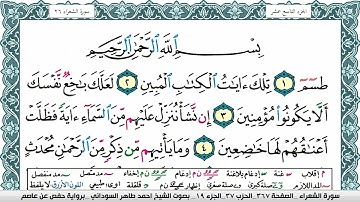 الجزء التاسع عشر
سورة الشعراء ٢٦
بِسْمِ اللَّهِ الرَّحْمَٰنِ الرَّحِيمِ
طسٓمٓ ١ تِلْكَ ءَايَٰتُ الْكِتَٰبِ الْمُبِينِ ٢ لَعَلَّكَ بَٰخِعٌ نَّفْسَكَ
أَلَّا يَكُونُوا۟ مُؤْمِنِينَ ٣ إِن نَّشَأْ نُنَزِّلْ عَلَيْهِم مِّنَ السَّمَآءِ ءَايَةً فَظَلَّتْ
أَعْنَٰقُهُمْ لَهَا خَٰضِعِينَ ٤ وَمَا يَأْتِيهِم مِّن ذِكْرٍ مِّنَ الرَّحْمَٰنِ مُحْدَثٍ
سورة الشعراء - الصفحة ٣٦٧ - الحزب ٣٧ - الجزء ١٩ - بصوت الشيخ احمد طاهر السوداني - برواية حفص عن عاصم